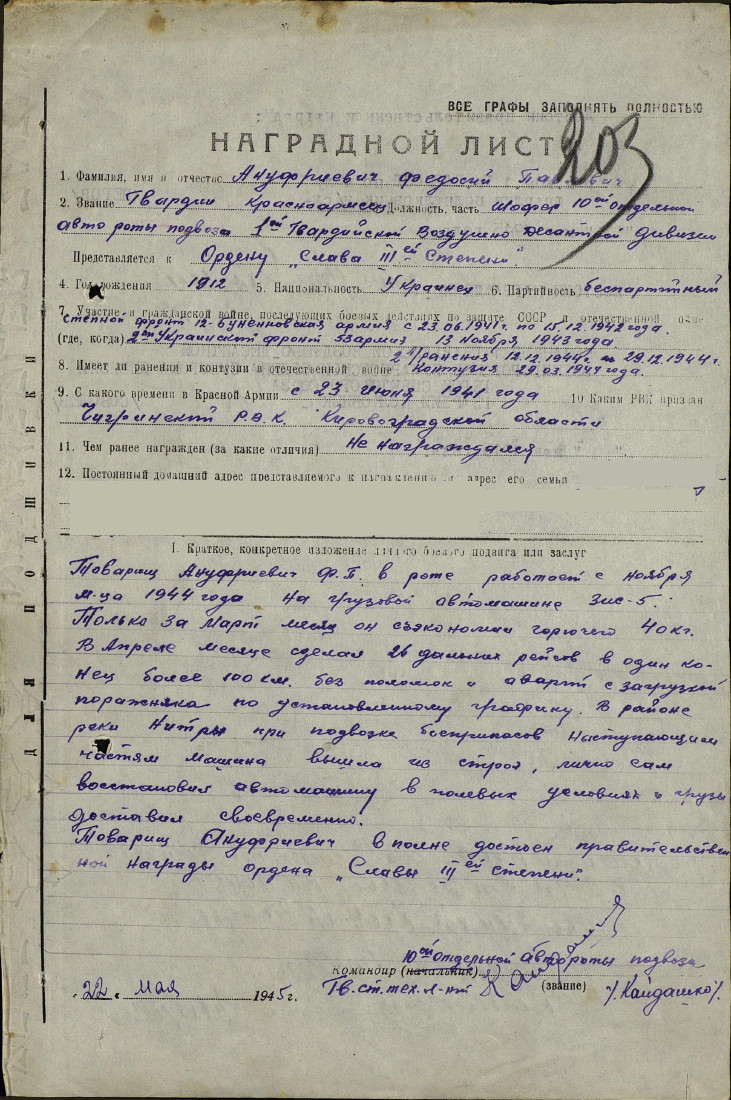 ВСЕ ГРАФЫ ЗАПОЛНЯТЬ ПОЛНОСТЬЮ
НАГРАДНОЙ ЛИСТ
203
1. Фамилия, имя и отчество Ануфриевич Федосий
2. Звание Гвардии Красноармеец Должность, часть Шофер 10ой отдельной
авто роты подвоза 1ой Гвардийской Воздушно десантной дивизии
Представляется к Ордену „Слава IIIей степени"
4. Год рождения 1912 5. Национальность Украинец 6. Партийность беспартийный
7. Участие в гражданской войне, последующих боевых действиях по защите СССР и отечественной войне
Степной фронт 12-Буденновская армия с 23.06.1941г. по 15.12.1942 года.
(где, когда) 2ой Украинский фронт 53 армия 13 ноября 1943 года
2а ранения 12.12.1944г. 29.12.1944г.
8. Имеет ли ранения и контузии в отечественной войне контузия 29.03.1944 года.
9. С какого времени в Красной Армии с 23 июня 1941 года 10 Каким РВК призван
Чигринский Р.В.К. Кировоградской области
11. Чем ранее награжден (за какие отличия) Не награждался
12. Постоянный домашний адрес представляемого к награждению и адрес его семьи
I. Краткое, конкретное изложение личного боевого подвига или заслуг
Товарищ Ануфриевич Ф.П. в роте работает с ноября
м-ца 1944 года на грузовой автомашине Зис-5.
Только за Март месяц он съэкономил горючего 40 кг.
В Апреле месяце сделал 26 дальних рейсов в один ко-
нец более 100 км. без поломок и аварт с загрузкой
поражняка по установленному графику. В районе
реки Нитры при подвозке боеприпасов наступающим
частям машина вышла из строя, лично сам
восстановил автомашину в полевых условиях и грузы
доставил своевременно.
Товарищ Ануфриевич вполне достоен правительствен
ной награды ордена „Славы IIIей степени".
10ой отдельной автороты подвоза
Командир (начальник)
Гв. ст. тех. л-нт (звание) /. Кайдашко /.
„ 22 „ мая 1945 г.
ДЛЯ ПОДШИВКИ